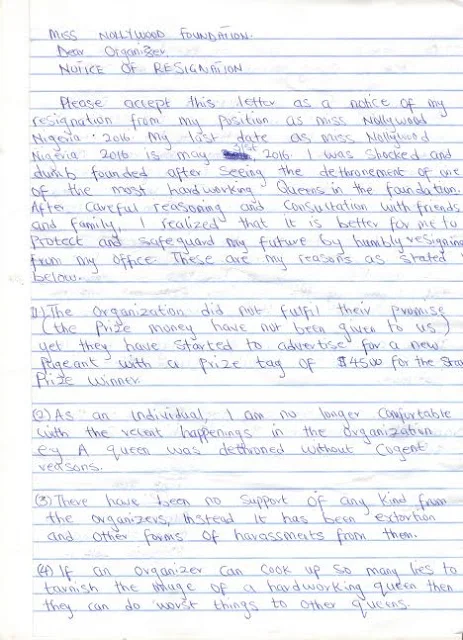 MISS NOLLYWOOD FOUNDATION.
Dear Organizer,
NOTICE OF RESIGNATION
Please accept this letter as a notice of my
resignation from my position as miss Nollywood
Nigeria 2016. My last date as miss Nollywood
Nigeria 2016 is may 31st, 2016. I was shocked and
dumb founded after seeing the dethronement of one
of the most hardworking Queens in the foundation.
After careful reasoning and consultation with friends
and family, I realized that it is better for me to
protect and safeguard my future by humbly resigning
from my office. These are my reasons as stated
below.
(1) The Organization did not fulfil their promise
(the prize money have not been given to us)
yet they have started to advertise for a new
pageant with a prize tag of $4500 for the
Prize winner.
(2) As an individual, I am no longer comfortable
with the recent happenings in the organization
e.g A queen was dethroned without cogent
reasons.
(3) There have been no support of any kind from
the organizers, instead it has been extortion
and other forms of harassments from them.
(4) If an organizer can cook up so many lies to
tarnish the image of a hardworking queen then
they can do worst things to other queens.